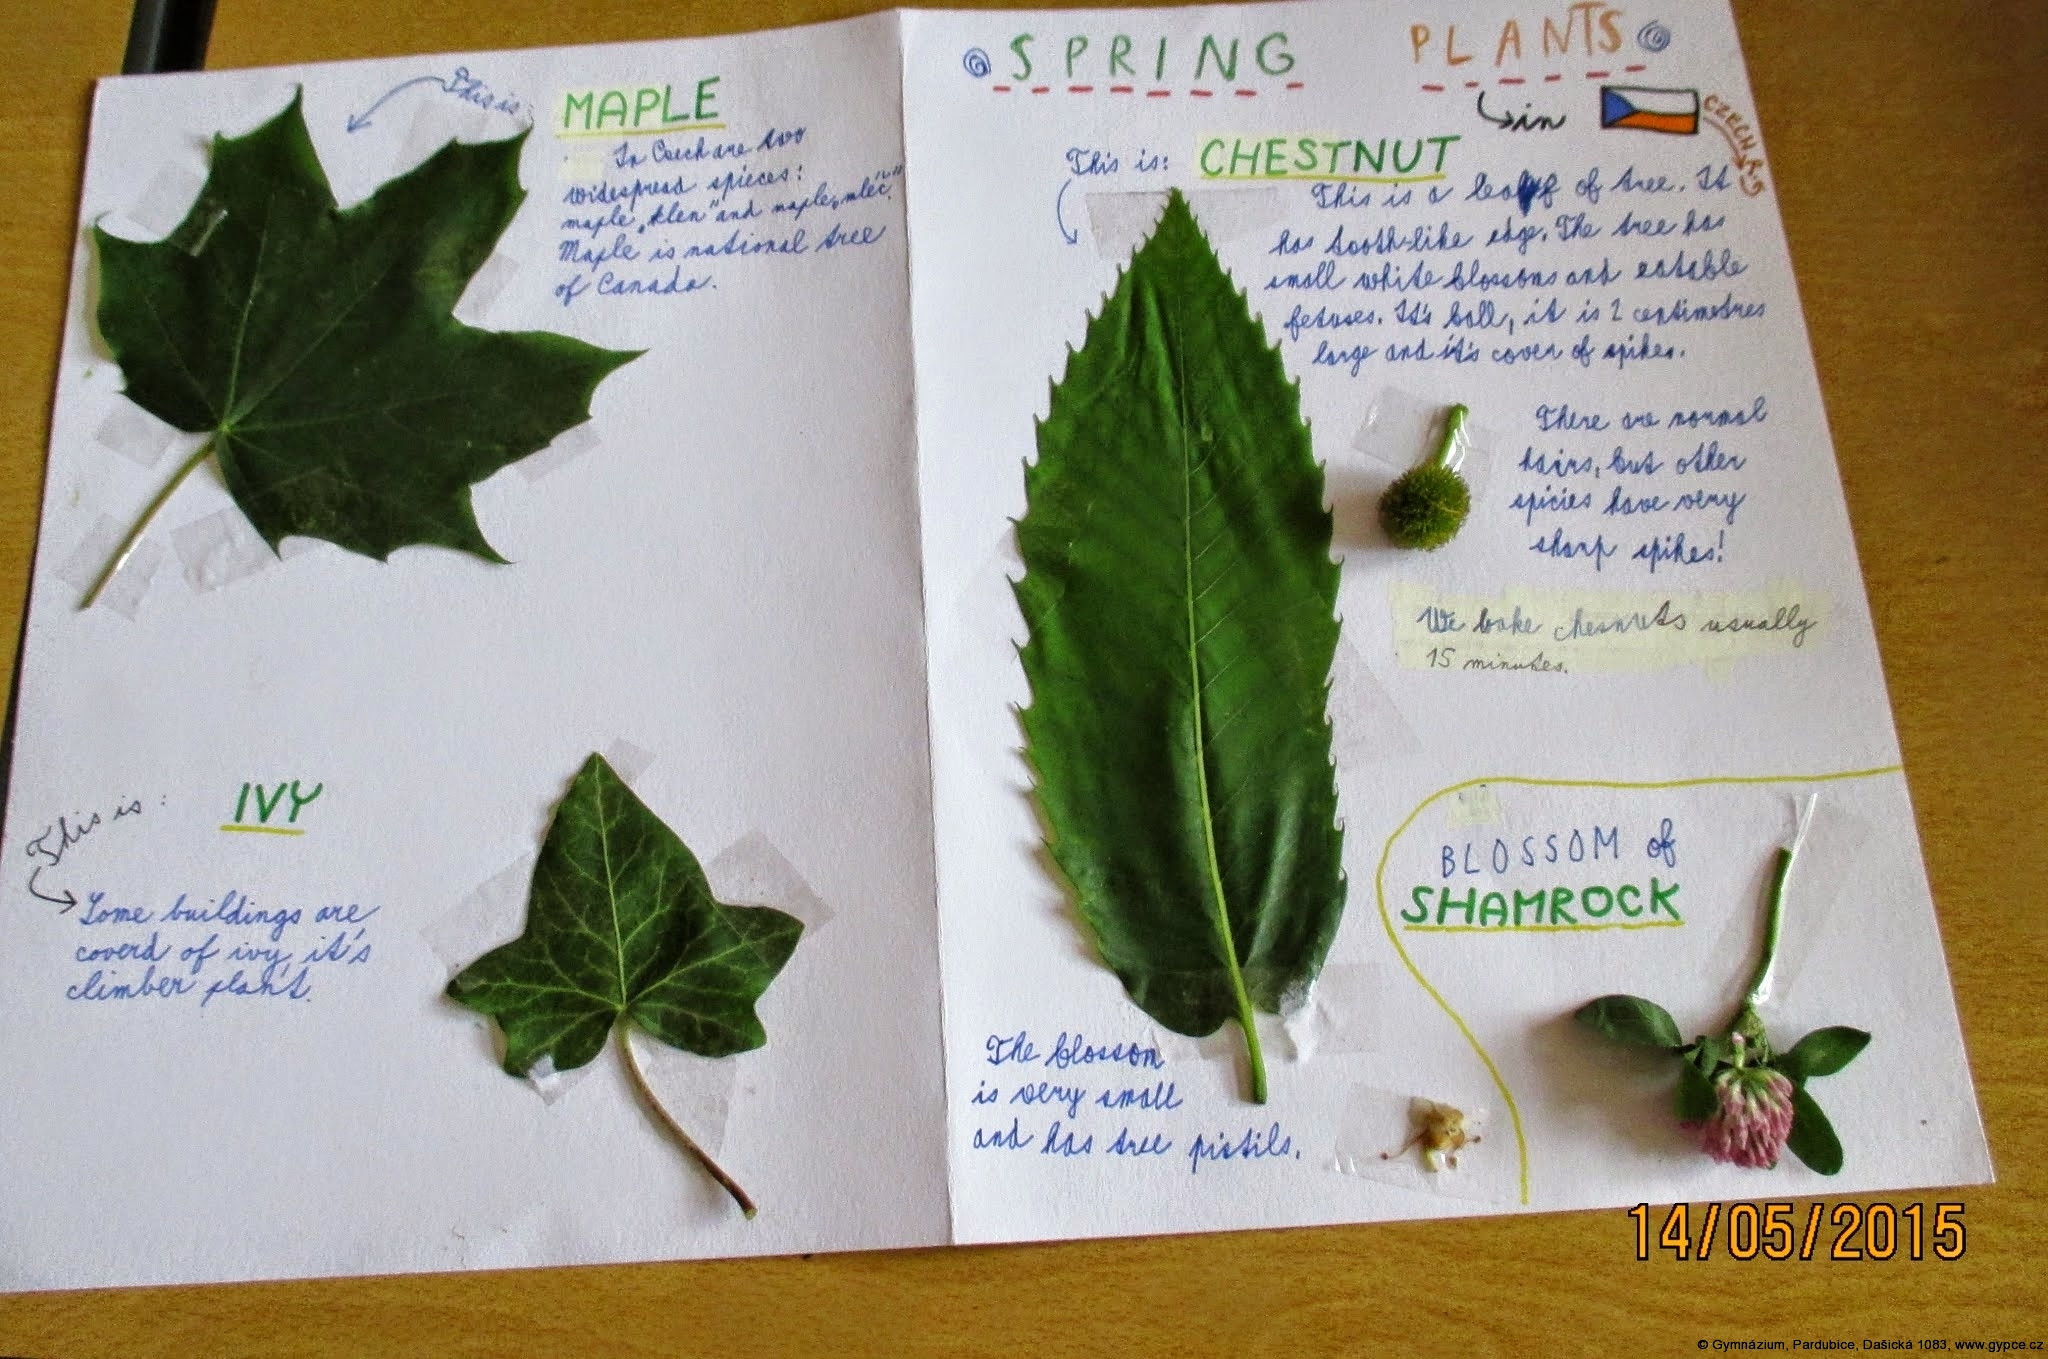 This is:
MAPLE
In Czech are two
widespread spieces:
maple „klen" and maple „mléč"
Maple is national tree
of Canada.
This is:
IVY
Some buildings are
coverd of ivy, it's
climber plant.
SPRING PLANTS
in
CZECH R.
This is: CHESTNUT
This is a leaf of tree. It
has tooth-like edge. The tree has
small white blossoms and eatable
fetuses. It's ball, it is 2 centimetres
large and it's cover of spikes.
There are normal
hairs, but other
spicies have very
sharp spikes!
We bake chesnuts usually
15 minutes.
The blossom
is very small
and has tree pistils.
BLOSSOM of
SHAMROCK
14/05/2015
© Gymnázium, Pardubice, Dašická 1083, www.gypce.cz